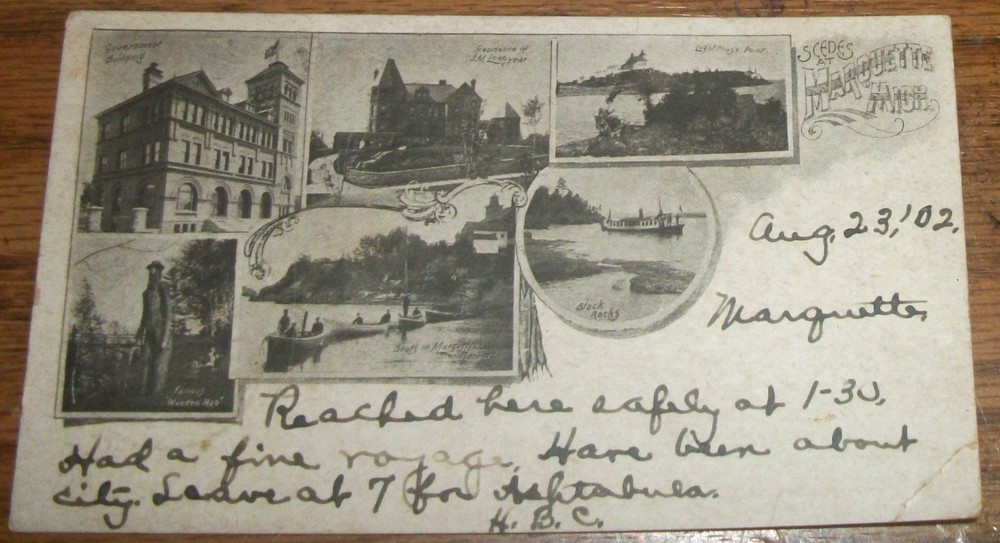 Government
Building
Residence of
J.M. Longyear
Lighthouse Point
SCENES
AT
MARQUETTE
MICH.
Aug. 23, '02.
Black
Rocks
Marquette
Boats in Marquette
Famous
"Wooden Man"
Reached here safely at 1-30,
Had a fine voyage. Have been about
city. Leave at 7 for Ashtabula.
H. B. C.